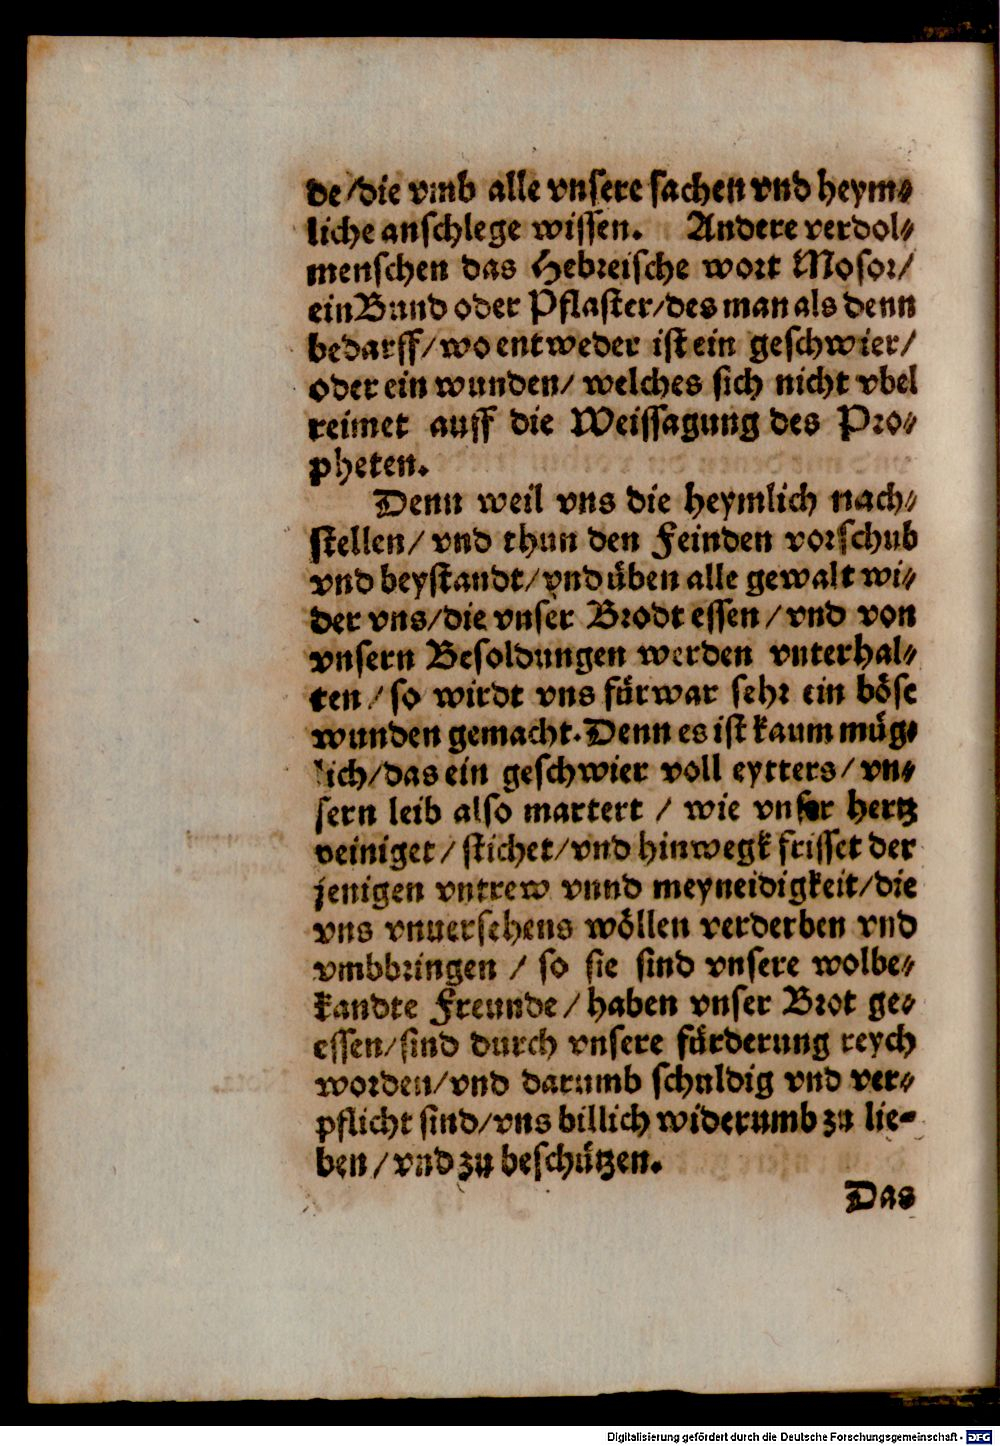 de/die vmb alle vnsere sachen vnd heym⸗
liche anschlege wissen. Andere verdol⸗
menschen das Hebreische wort Mosor/
ein Bund oder Pflaster/des man als denn
bedarff/wo entweder ist ein geschwier/
oder ein wunden/ welches sich nicht vbel
reimet auff die Weissagung des Pro⸗
pheten.
Denn weil vns die heymlich nach⸗
stellen/ vnd thun den Feinden vorschub
vnd beystandt/vnd üben alle gewalt wi⸗
der vns/die vnser Brodt essen/ vnd von
vnsern Besoldungen werden vnterhal⸗
ten/ so wirdt vns fürwar sehr ein böse
wunden gemacht. Denn es ist kaum müg⸗
lich/das ein geschwier voll eytters/ vn⸗
sern leib also martert / wie vnser hertz
peiniget/ stichet/vnd hinwegk frisset der
jenigen vntrew vnnd meyneidigkeit/die
vns vnuersehens wöllen verderben vnd
vmbbringen / so sie sind vnsere wolbe⸗
kandte Freunde/ haben vnser Brot ge⸗
essen/sind durch vnsere fürderung reych
worden/vnd darumb schuldig vnd ver⸗
pflicht sind/vns billich widerumb zu lie⸗
ben/vnd zu beschützen.
Das
Digitalisierung gefördert durch die Deutsche Forschungsgemeinschaft - DFG